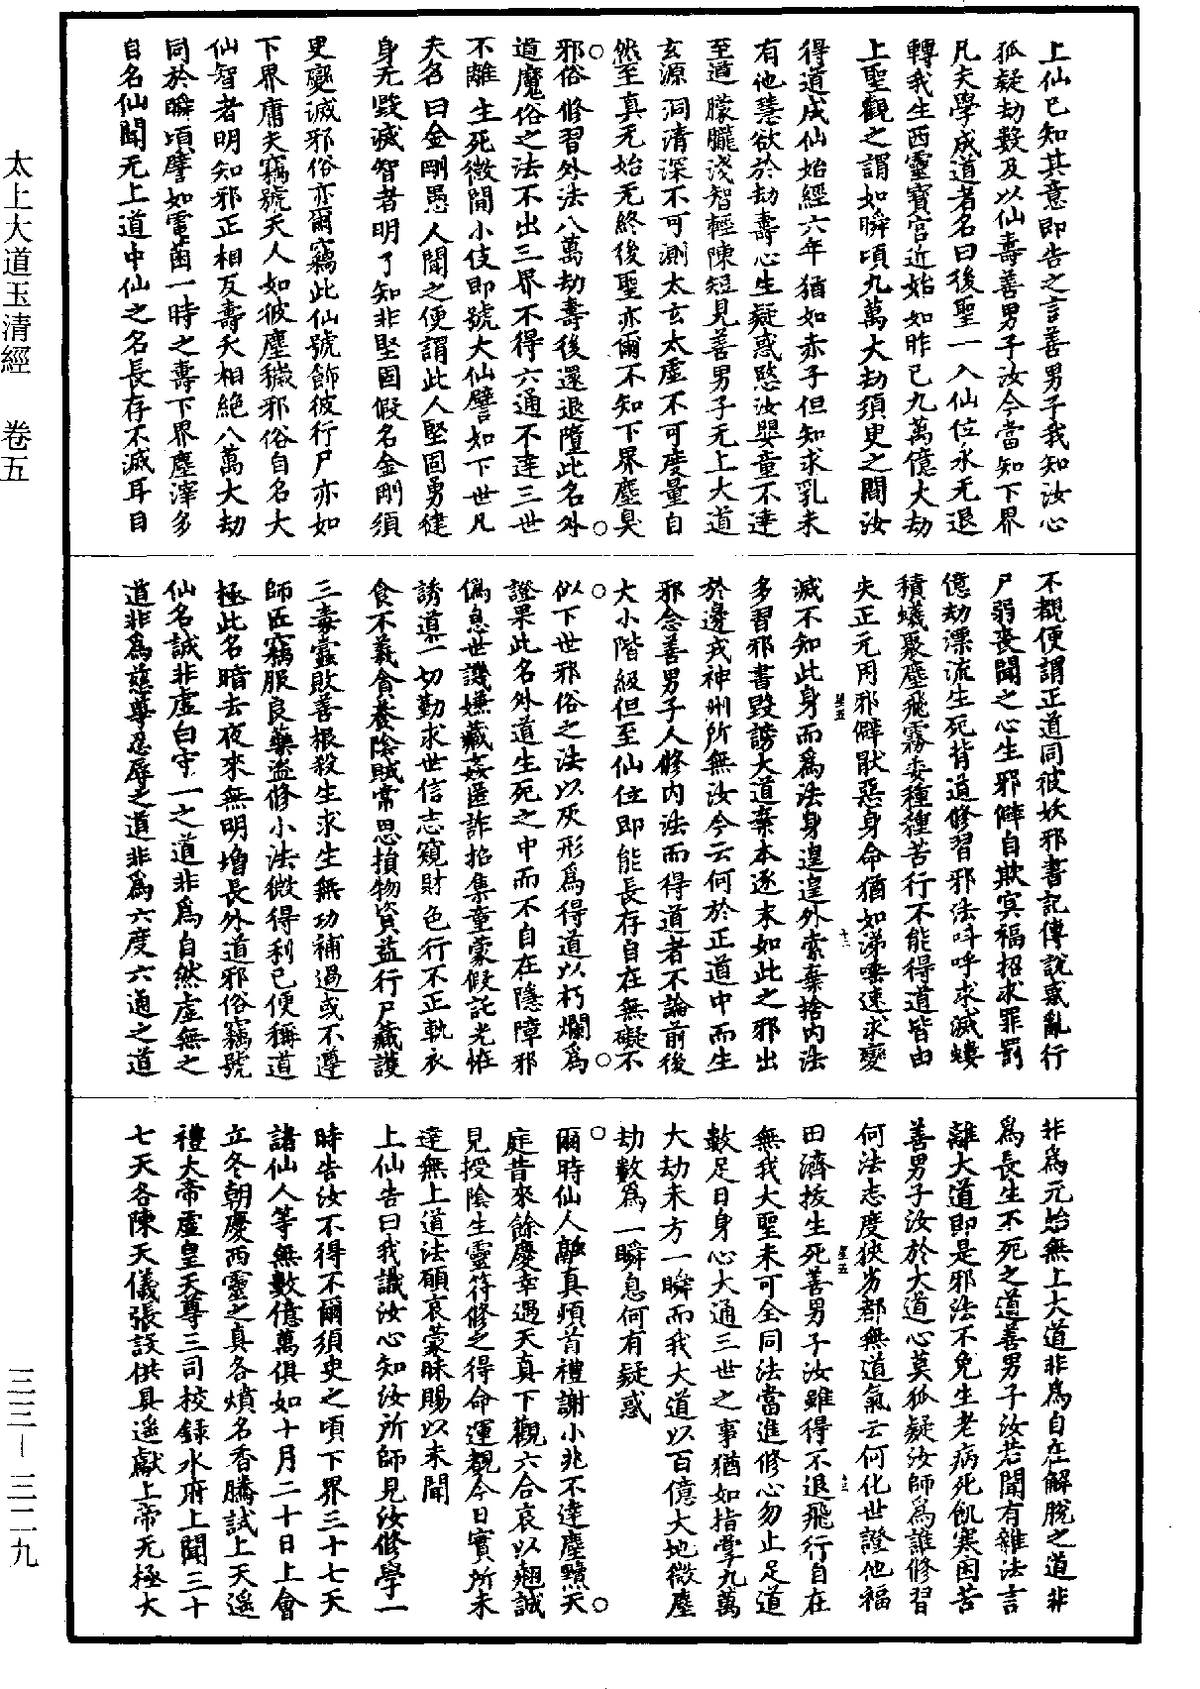 太上大道玉清經　卷五
三三—三二九
上仙已知其意即告之言善男子我知汝心
狐疑劫數及以仙壽善男子汝今當知下界
凡夫學成道者名曰後聖一入仙位永无退
轉我生西靈寶宮近始如昨已九萬億大劫
上聖觀之謂如瞬頃九萬大劫須臾之間汝
得道成仙始經六年猶如赤子但知求乳未
有他慧欲於劫壽心生疑惑愍汝嬰童不達
至道朦朧淺智輕陳短見善男子无上大道
玄源洞清深不可測太玄太虛不可度量自
然至真无始无終後聖亦爾不知下界塵臭
邪俗修習外法八萬劫壽後還退墮此名外
道魔俗之法不出三界不得六通不達三世
不離生死微間小伎即號大仙譬如下世凡
夫名曰金剛愚人聞之便謂此人堅固勇健
身无毀滅智者明了知非堅固假名金剛須
臾變滅邪俗亦爾竊此仙號飾彼行尸亦如
下界庸夫竊號天人如彼塵穢邪俗自名大
仙智者明知邪正相反壽夭相絕八萬大劫
同於瞬頃譬如電菌一時之壽下界塵滓多
自名仙聞无上道中仙之名長存不滅耳目
不覩便謂正道同彼妖邪書記傳說惑亂行
尸弱喪聞之心生邪僻自欺冥福招求罪罰
億劫漂流生死背道修習邪法叫呼求滅螻
積蟻聚塵飛霧委種種苦行不能得道皆由
失正元用邪僻猒惡身命猶如涕唾速求變
星五
十二
滅不知此身而為法身遑遑外索棄捨內法
多習邪書毀謗大道棄本逐末如此之邪出
於邊戎神州所無汝今云何於正道中而生
邪念善男子人修內法而得道者不論前後
大小階級但至仙位即能長存自在無礙不
似下世邪俗之法以灰形為得道以朽爛為
證果此名外道生死之中而不自在隱障邪
偽息世譏嫌藏姦匿詐招集童蒙假託光恠
誘導一切勤求世信志窺財色行不正軌衣
食不義貪養陰賊常思損物資益行尸藏護
三毒靈敗善根殺生求生無功補過或不遵
師匠竊服良藥盜修小法微得利已便稱道
極此名暗去夜來無明增長外道邪俗竊號
仙名誠非虛白守一之道非為自然虛無之
道非為慈尊忍辱之道非為六度六通之道
非為元始無上大道非為自在解脫之道非
為長生不死之道善男子汝若聞有雜法言
離大道即是邪法不免生老病死飢寒困苦
善男子汝於大道心莫狐疑汝師為誰修習
何法志度狹劣都無道氣云何化世證他福
星五
十三
田濟拔生死善男子汝雖得不退飛行自在
無我大聖未可全同法當進修心勿止足道
數足日身心大通三世之事猶如指掌九萬
大劫未方一瞬而我大道以百億大地微塵
劫數為一瞬息何有疑惑
爾時仙人融真頃首禮謝小兆不達塵黷天
庭昔來餘慶幸遇天真下觀六合哀以翹誠
見授陰生靈符修之得命運覩今日實所未
達無上道法願哀蒙昧賜以未聞
上仙告曰我識汝心知汝所師見汝修學一
時告汝不得不爾須臾之頃下界三十七天
諸仙人等無數億萬俱如十月二十日上會
立冬朝慶西靈之真各燌名香騰試上天遙
禮大帝虛皇天尊三司校錄水府上聞三十
七天各陳天儀張設供具遙獻上帝无極大